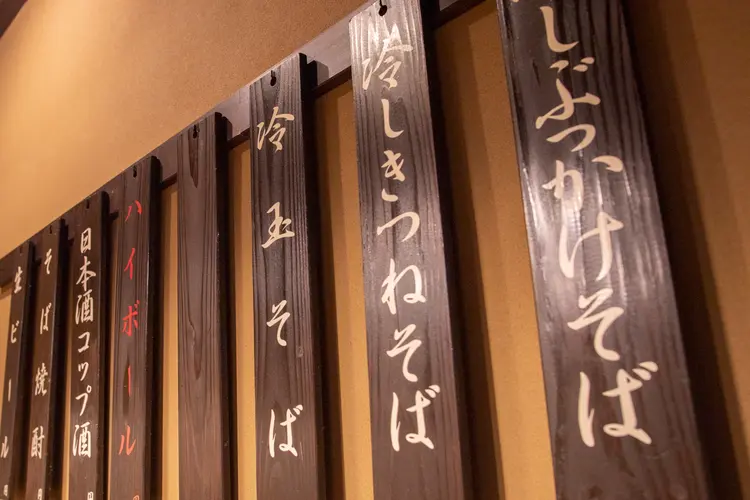 しぶっかけそば
冷しきつねそば
冷玉そば
ハイボール
日本酒コップ酒
そば焼酎
生ビール